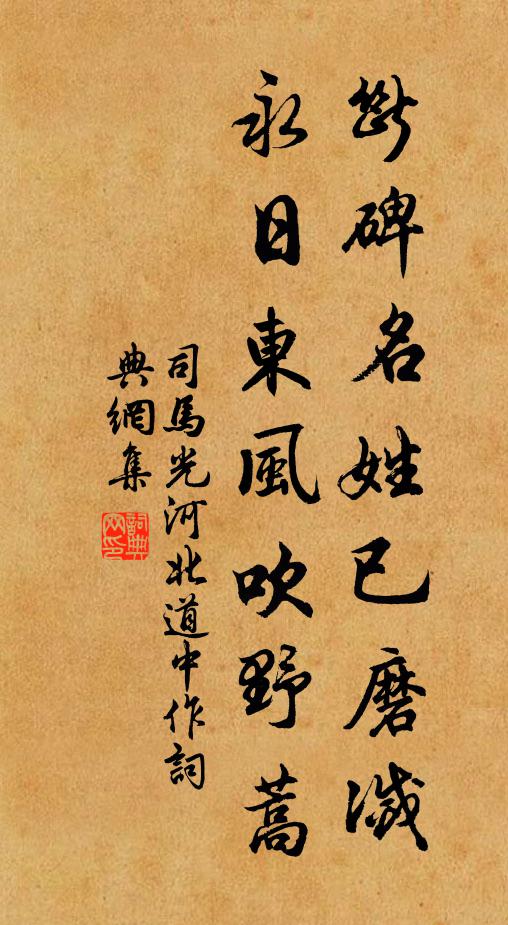 斷碑名姓已磨滅
永日東風吹野蒿
司馬光河北道中作詞
典網集
詞典
网印